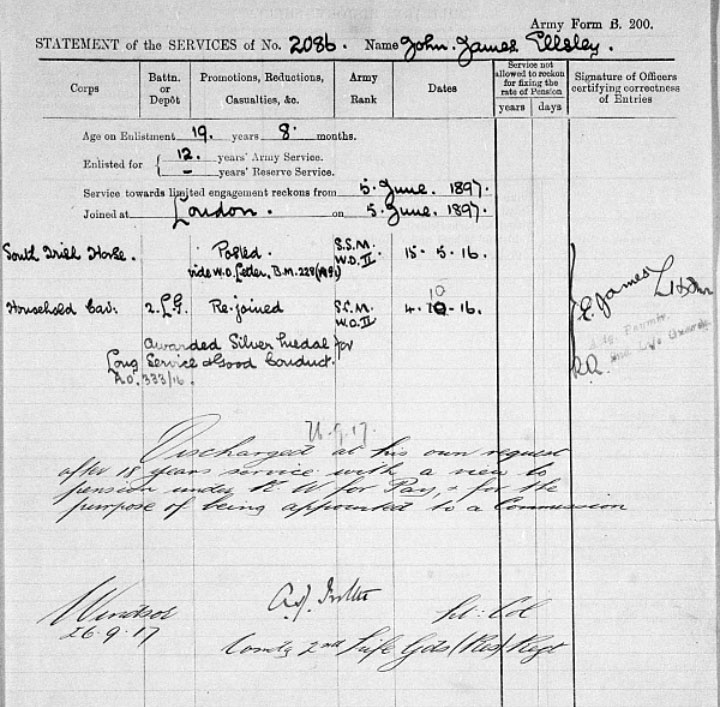 Army Form B. 200.
STATEMENT of the SERVICES of No. 2086. Name John James Ellsley.
Corps
Battn. or Depôt
Promotions, Reductions, Casualties, &c.
Army Rank
Dates
Service not allowed to reckon for fixing the rate of Pension
years days
Signature of Officers certifying correctness of Entries
Age on Enlistment 19. years 8. months.
Enlisted for { 12. years' Army Service.
– years' Reserve Service.
Service towards limited engagement reckons from 5. June. 1897.
Joined at London. on 5. June. 1897.
South Irish Horse. Posted. S.S.M. W.O. II. 15. 5. 16.
vide W.O. Letter, B.M. 228
Household Cav: 2. L.G. Re-joined W.O. II 4. 10. 16.
E. James
Awarded Silver Medal for
Long Service & Good Conduct.
A.O. 333/16.
2nd Life Guards
26.9.17.
Discharged at his own request
after 18 years service with a view to
pension under R. W for Pay, & for the
purpose of being appointed to a Commission
Windsor Lt: Col
26.9.17 Comdg 2nd Life Gds (Res) Regt